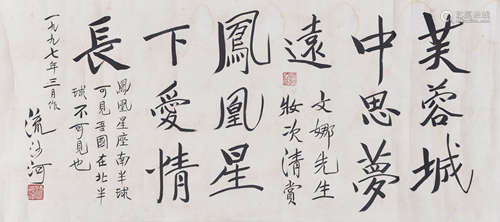 芙蓉城
中思夢
遠
文娜先生
妝次清賞
鳳凰星
下愛情
長
鳳凰星座南半球
可見吾國在北半
球不可見也
一九九七年三月作
流沙河